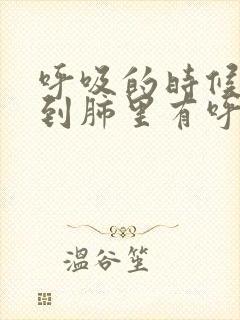 呼吸的时候
到肺里有呼
温谷笙